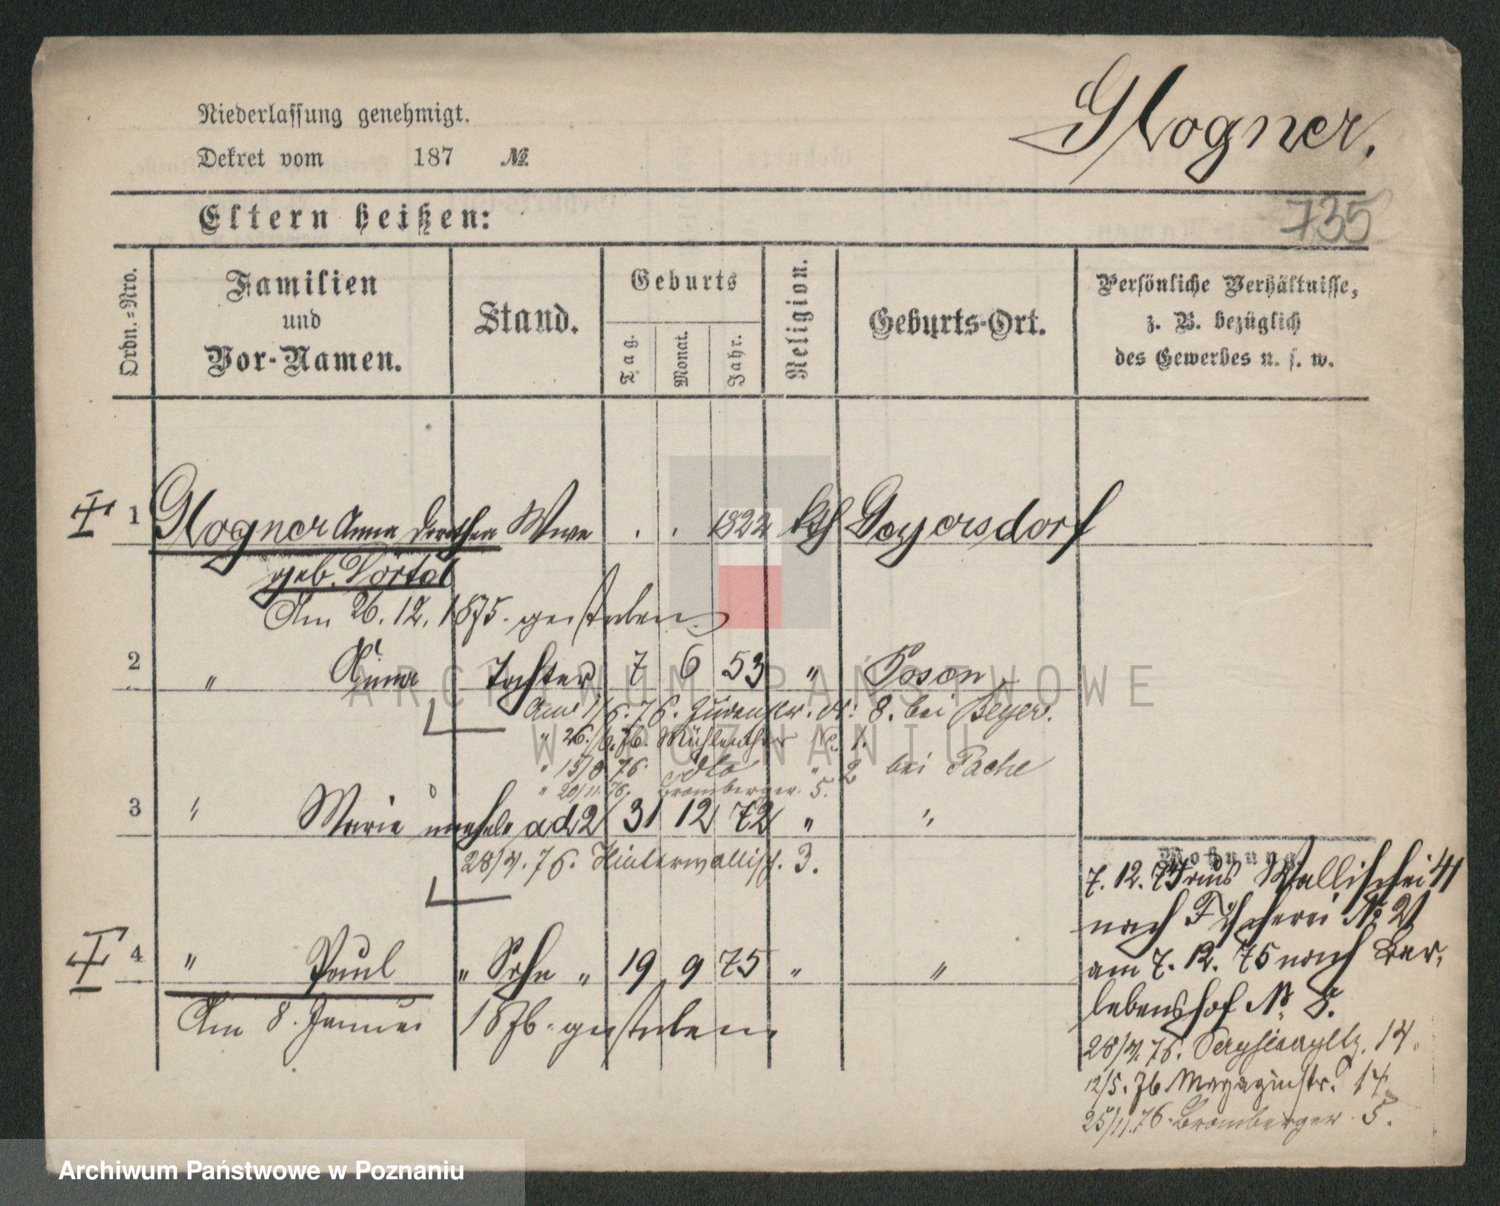 Niederlassung genehmigt.
Dekret vom 187 №
Glogner.
735
Eltern heißen:
Ordn.-Nro.
Familien
und
Vor-Namen.
Stand.
Geburts
Tag.
Monat.
Jahr.
Religion.
Geburts-Ort.
Persönliche Verhältnisse,
z. B. bezüglich
des Gewerbes u. s. w.
1 Glogner Anna Dorothea Wwe . . 1822 kth Geyersdorf
geb.
Am 26. 12. 1875. gestorben
2 " Anna Tochter 7 6 53 " Posen
Am 1/5. 76. Judenstr. № 8. bei Beyer.
" 26./6. 76. Mühlenthor № 1.
" 15/8 76. dto " 2 bei Pache
" 20/11. 76. Bromberger. 5.
3 " Marie unehel. ad 2 31 12 72 " "
28/4. 76. Hinterwallisch. 3.
4 " Paul " Sohn " 19 9 75 " "
Am 8. Januar 1876. gestorben.
Wohnung.
7. 12. 75 aus Wallischei 41
nach Fischerei № 21
am 7. 12. 75 nach Bar,
lebenshof № 8.
28/4. 76. 14.
12/5. 76 Magazinstr. 14
25/11. 76. Bromberger. 5.
ARCHIWUM PAŃSTWOWE
W POZNANIU
Archiwum Państwowe w Poznaniu